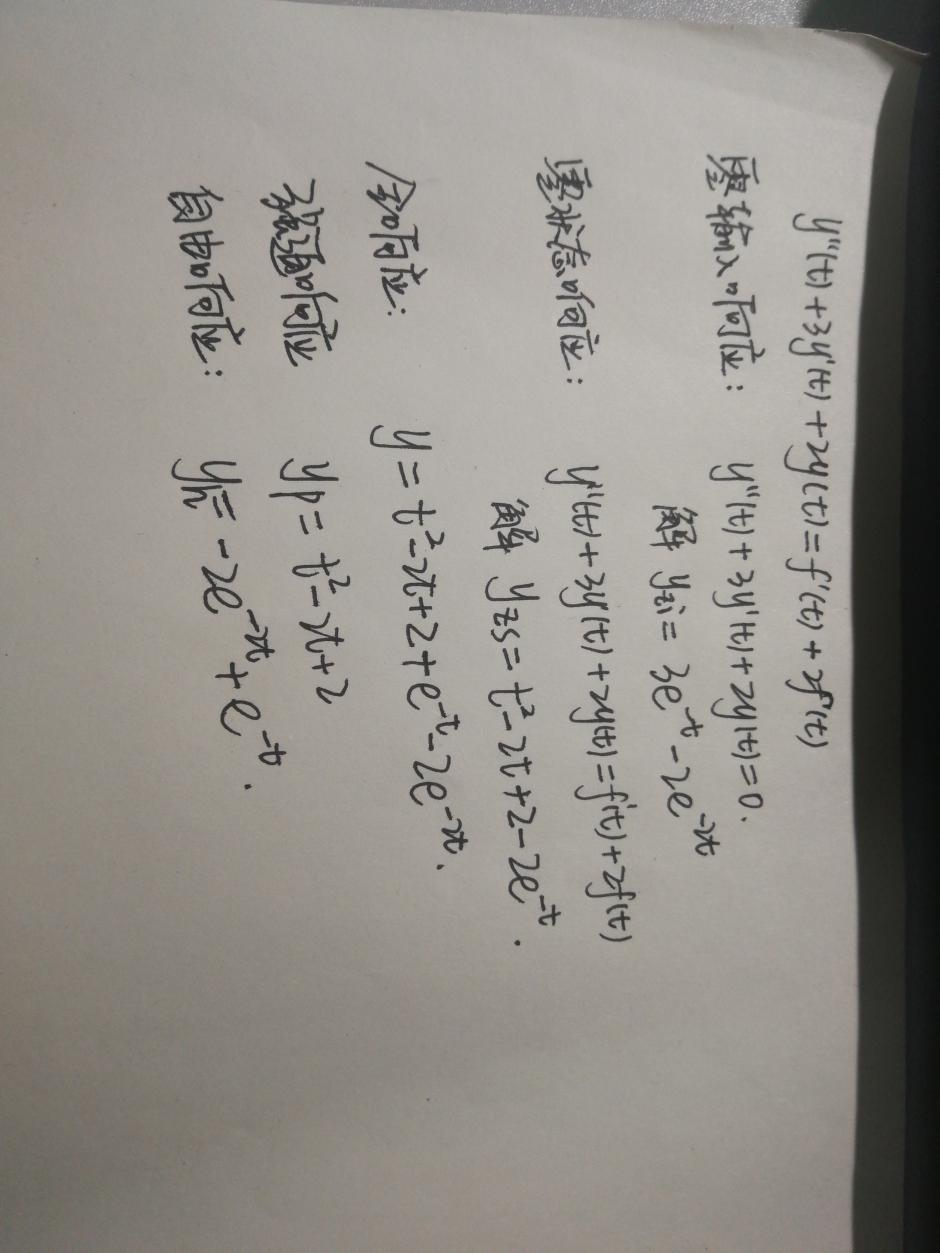 y''(t)+3y'(t)+2y(t)=f'(t)+2f'(t)
零输入响应: y''(t)+3y'(t)+2y(t)=0.
解 yzi=3e^-t-2e^-2t
零状态响应: y''(t)+3y'(t)+2y(t)=f'(t)+2f(t)
解 yzs=t²-2t+2-2e^-t.
全响应: y=t²-2t+2+e^-t-2e^-2t.
强迫响应 yp=t²-2t+2
自由响应: yh=-2e^-2t+e^-t.